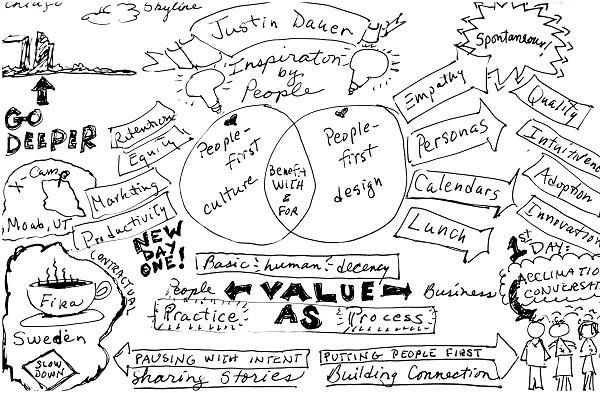 Skyline
Justin Dauer
Spontaneous!
Inspiration by
People
GO
DEEPER
Retention
Equity
Marketing
Productivity
X-Camp
Moab, UT
People-
first
culture
Benefit
WITH
&
FOR
People-
first
design
Empathy
Personas
Calendars
Lunch
Quality
Intuitivene
Adoption
Innovation
NEW
DAY
ONE!
CONTRACTUAL
1st
DAY:
ACCLIMATIO
CONVERSAT
Basic human decency
People VALUE Business
Practice AS Process
Fika
Sweden
SLOW
DOWN
PAUSING WITH INTENT PUTTING PEOPLE FIRST
Sharing Stories Building Connection